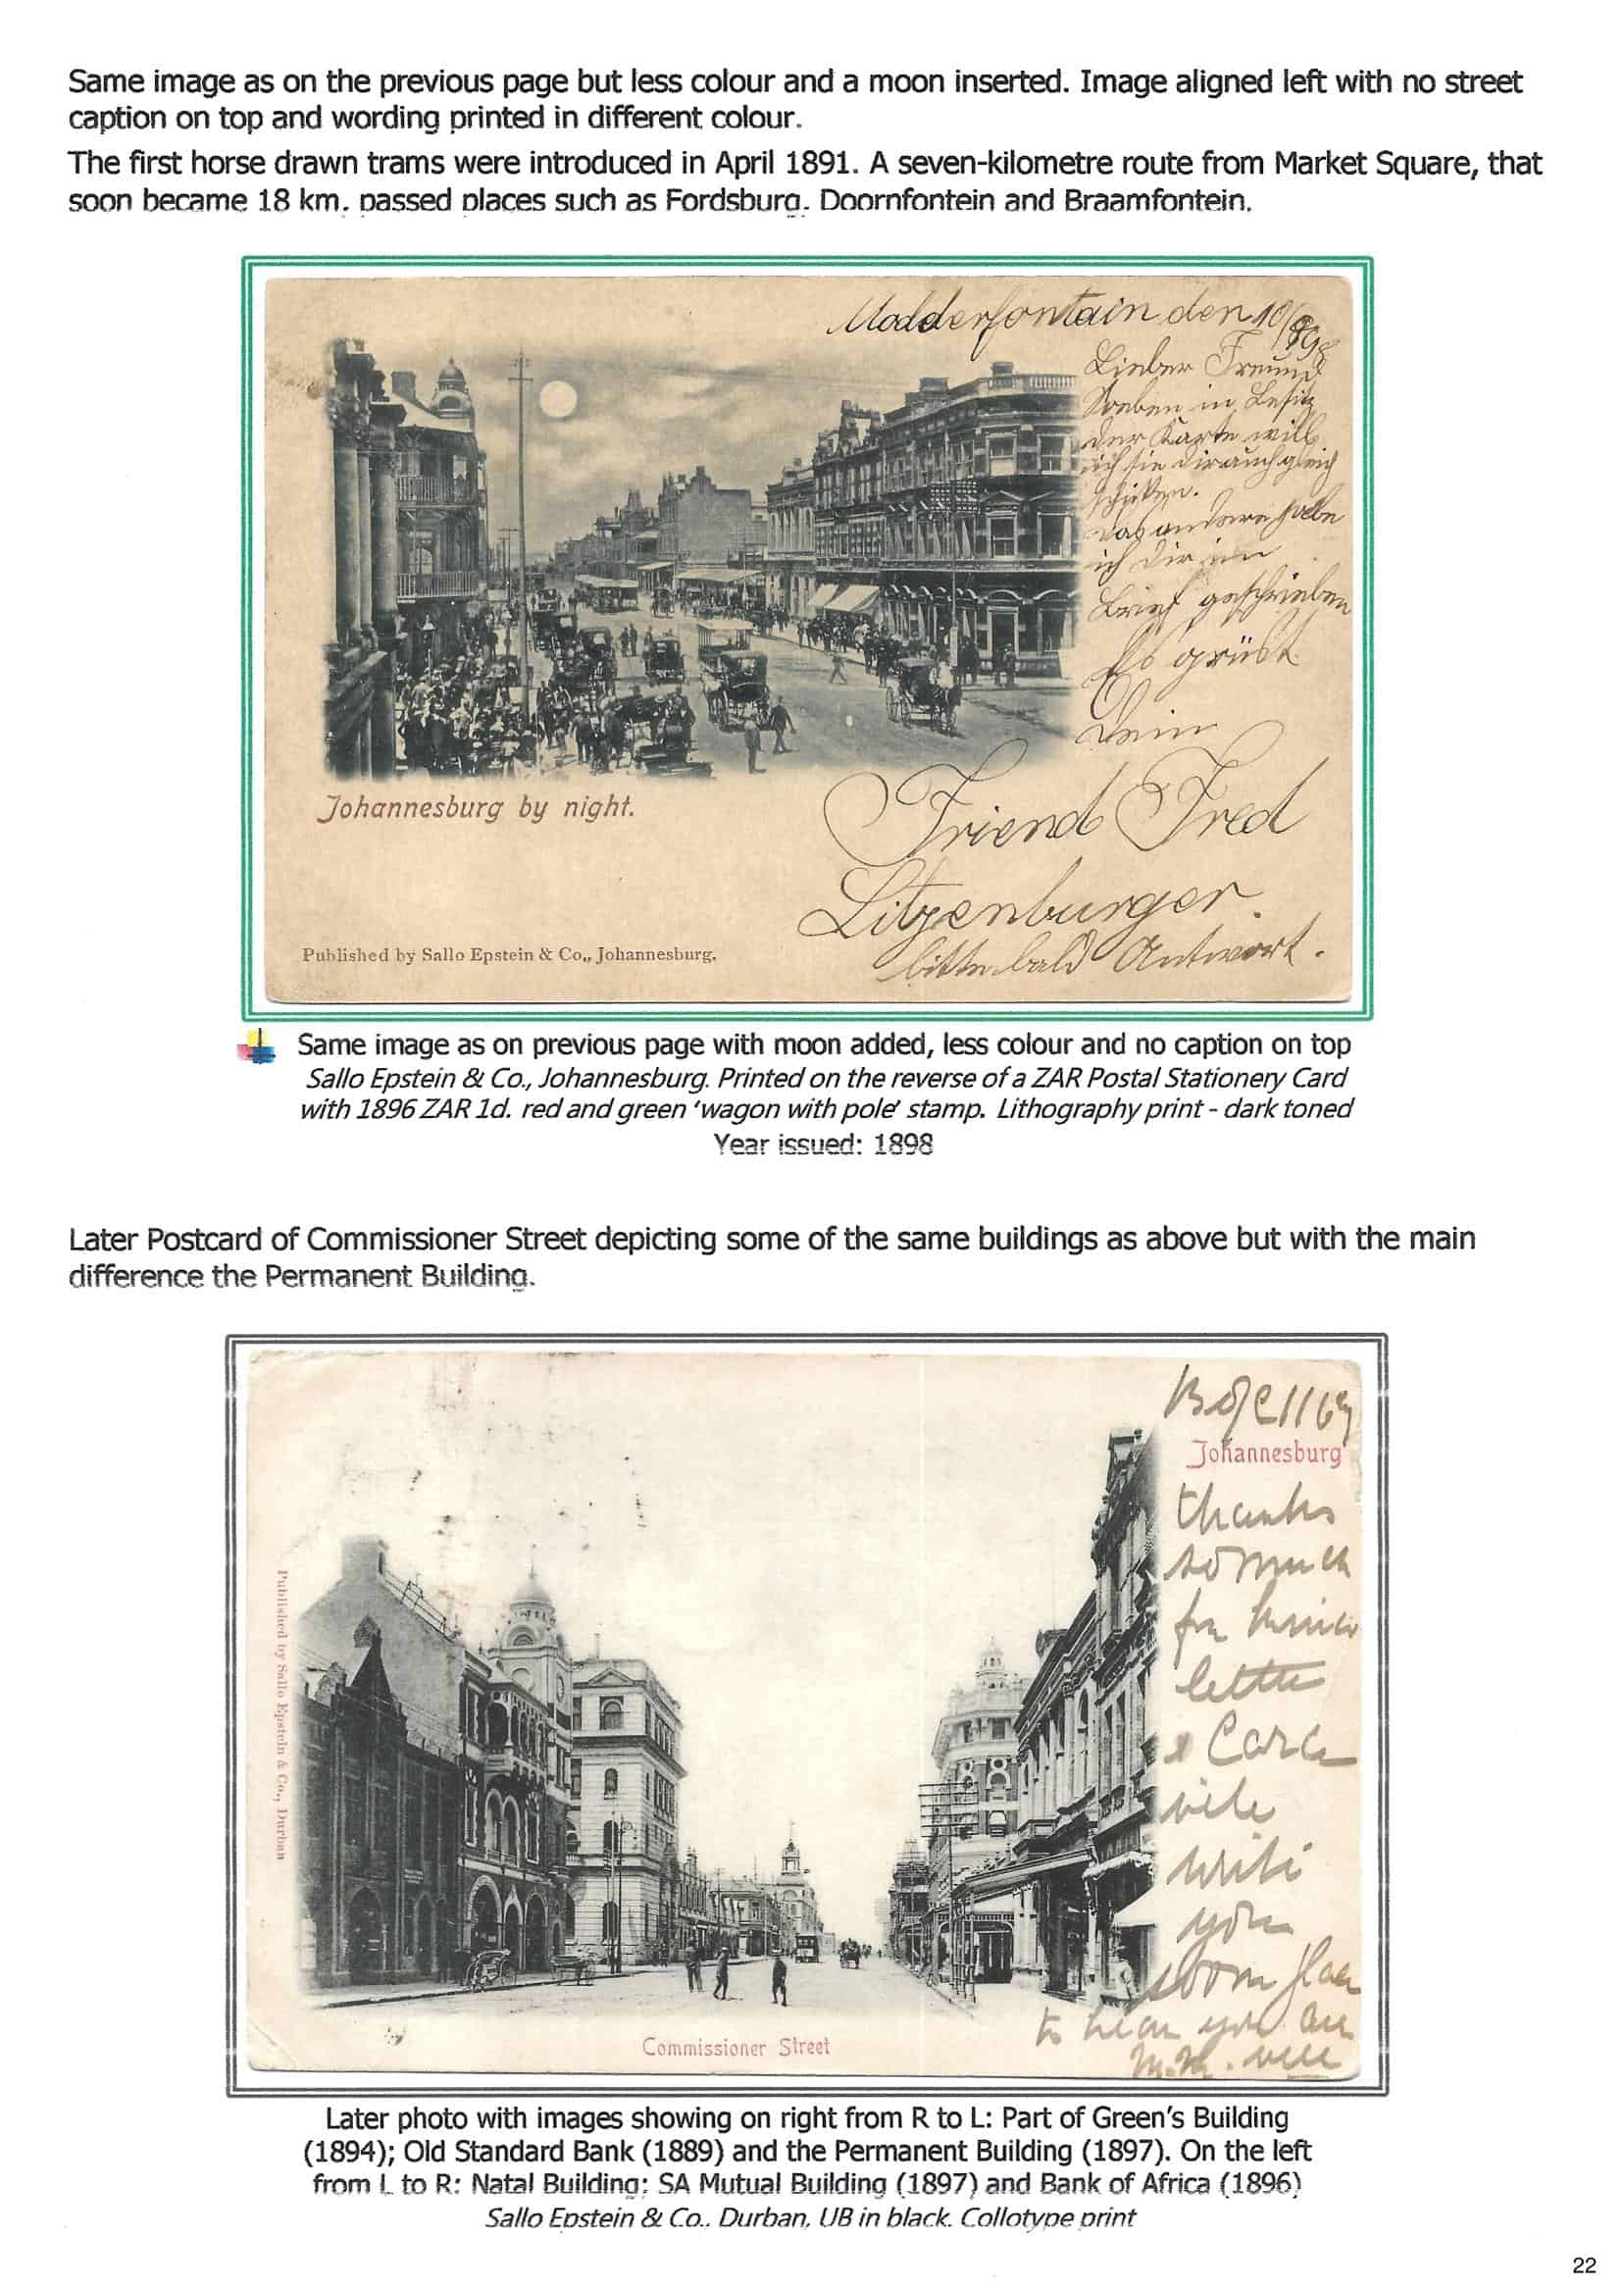 Same image as on the previous page but less colour and a moon inserted. Image aligned left with no street
caption on top and wording printed in different colour.
The first horse drawn trams were introduced in April 1891. A seven-kilometre route from Market Square, that
soon became 18 km. passed places such as Fordsburg. Doornfontein and Braamfontein.
Modderfontain den 10/8 98
Lieber Freund
Soeben in Besitz
der Karte will
ich sie Dir auch gleich
schicken.
das andere habe
ich Dir im
Brief geschrieben
Es grüßt
Dein
Friend Fred
Litzenburger.
bitte bald Antwort.
Johannesburg by night.
Published by Sallo Epstein & Co., Johannesburg.
Same image as on previous page with moon added, less colour and no caption on top
Sallo Epstein & Co., Johannesburg. Printed on the reverse of a ZAR Postal Stationery Card
with 1896 ZAR 1d. red and green 'wagon with pole' stamp. Lithography print - dark toned
Year issued: 1898
Later Postcard of Commissioner Street depicting some of the same buildings as above but with the main
difference the Permanent Building.
Johannesburg
thanks
so much
for
letter
& Card
will
write
you
soon
to hear you are
well
Published by Sallo Epstein & Co., Durban
Commissioner Street
Later photo with images showing on right from R to L: Part of Green's Building
(1894); Old Standard Bank (1889) and the Permanent Building (1897). On the left
from L to R: Natal Building; SA Mutual Building (1897) and Bank of Africa (1896)
Sallo Epstein & Co.. Durban. UB in black. Collotype print
22